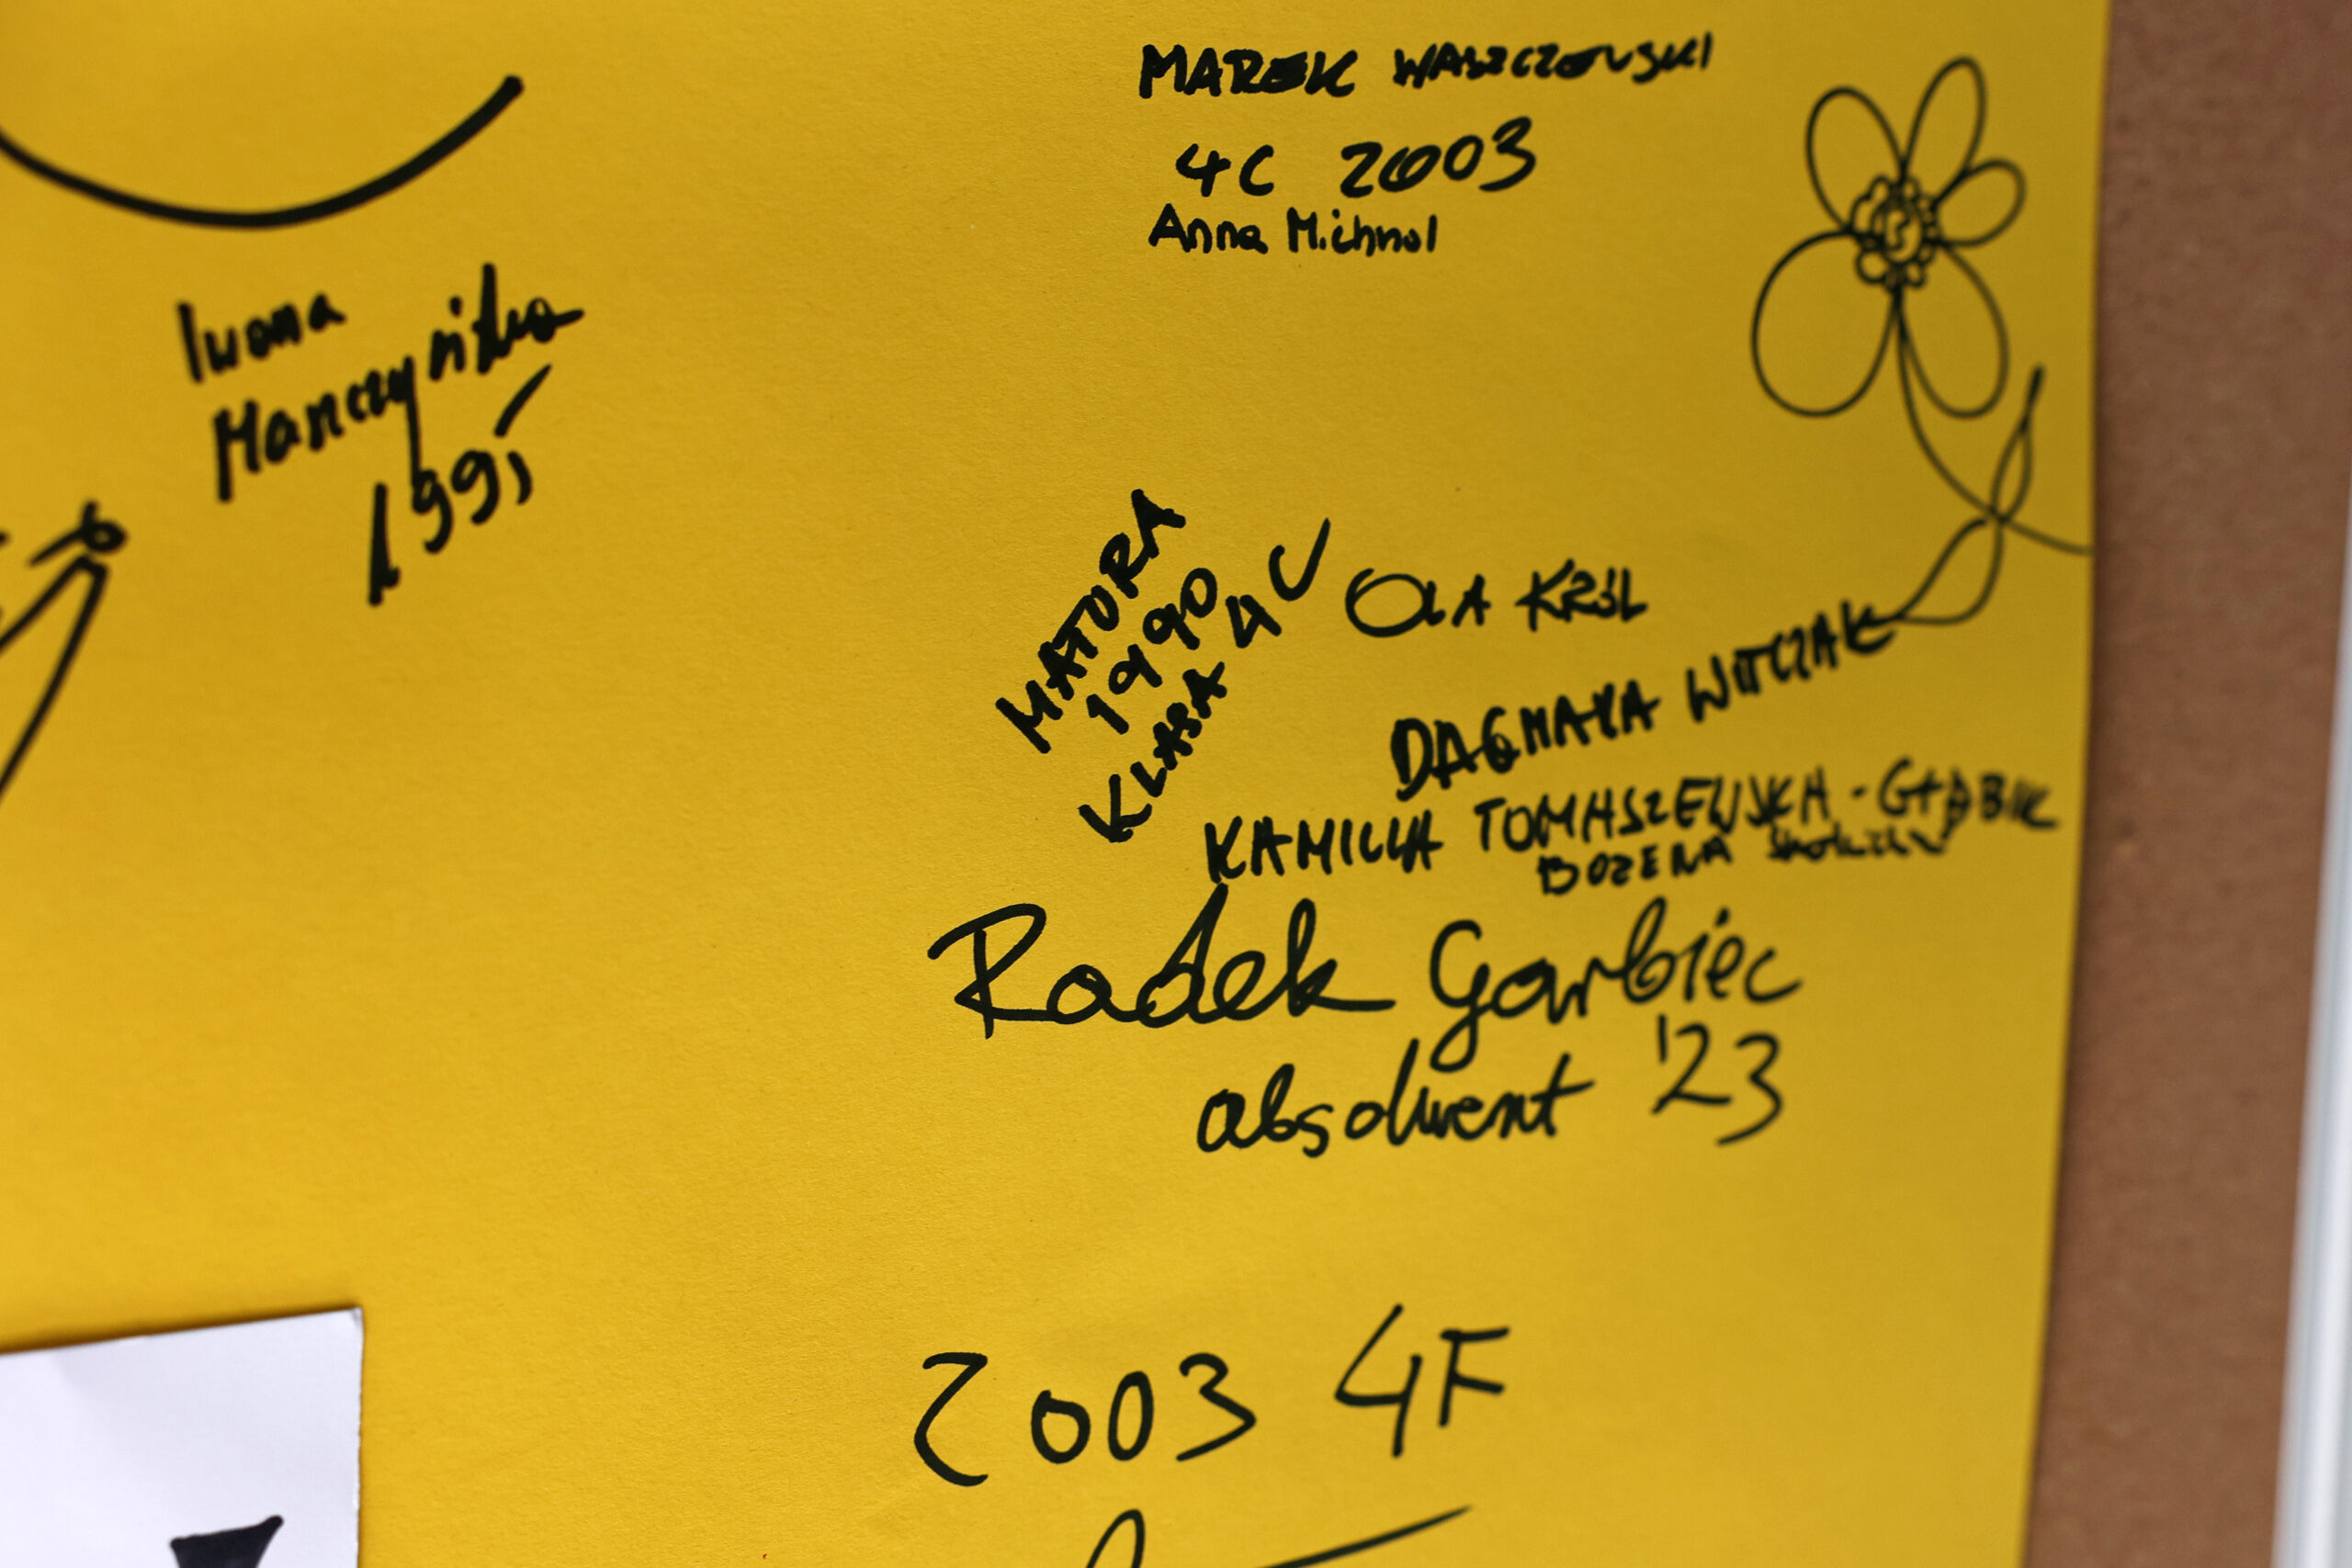 MAREK WASZCZEWSKI
4C 2003
Anna Michnol
Iwona
Manczyńska
1995
MATURA
1990
KLASA 4C
OLA KRÓL
DAGMARA WITCZAK
KAMILLA TOMASZEWSKA - GŁĄBIK
BOŻENA
Radek Garbiec
absolwent '23
2003 4F